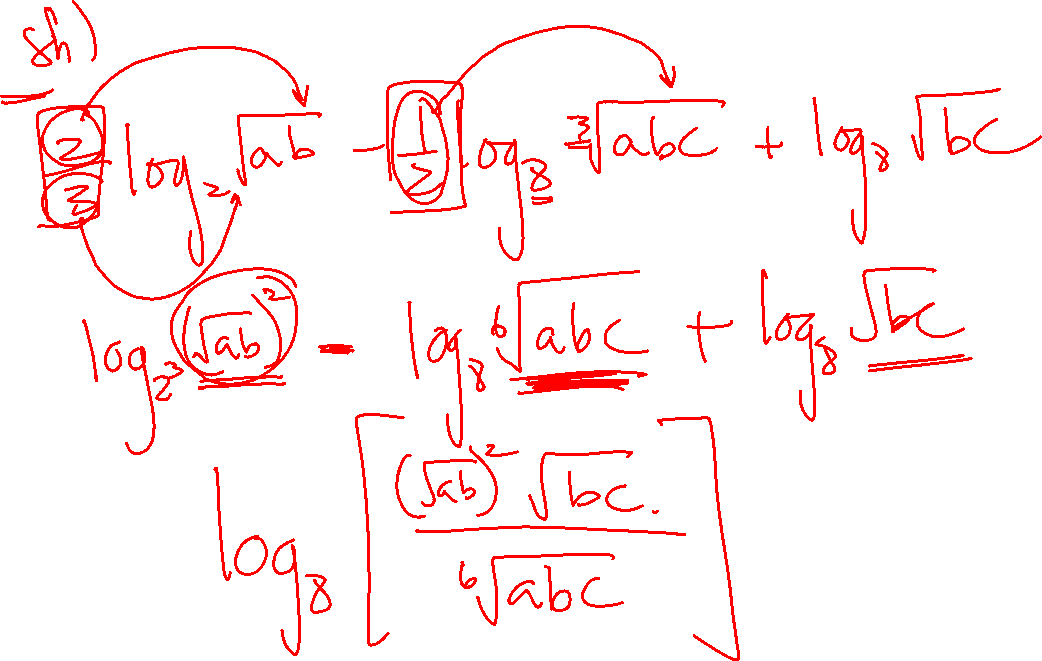 8h)
2/3 log₂ √ab - 1/2 log₈ ³√abc + log₈ √bc
log₂³ (√ab)² - log₈ ⁶√abc + log₈ √bc
log₈ [ (√ab)² √bc. / ⁶√abc ]